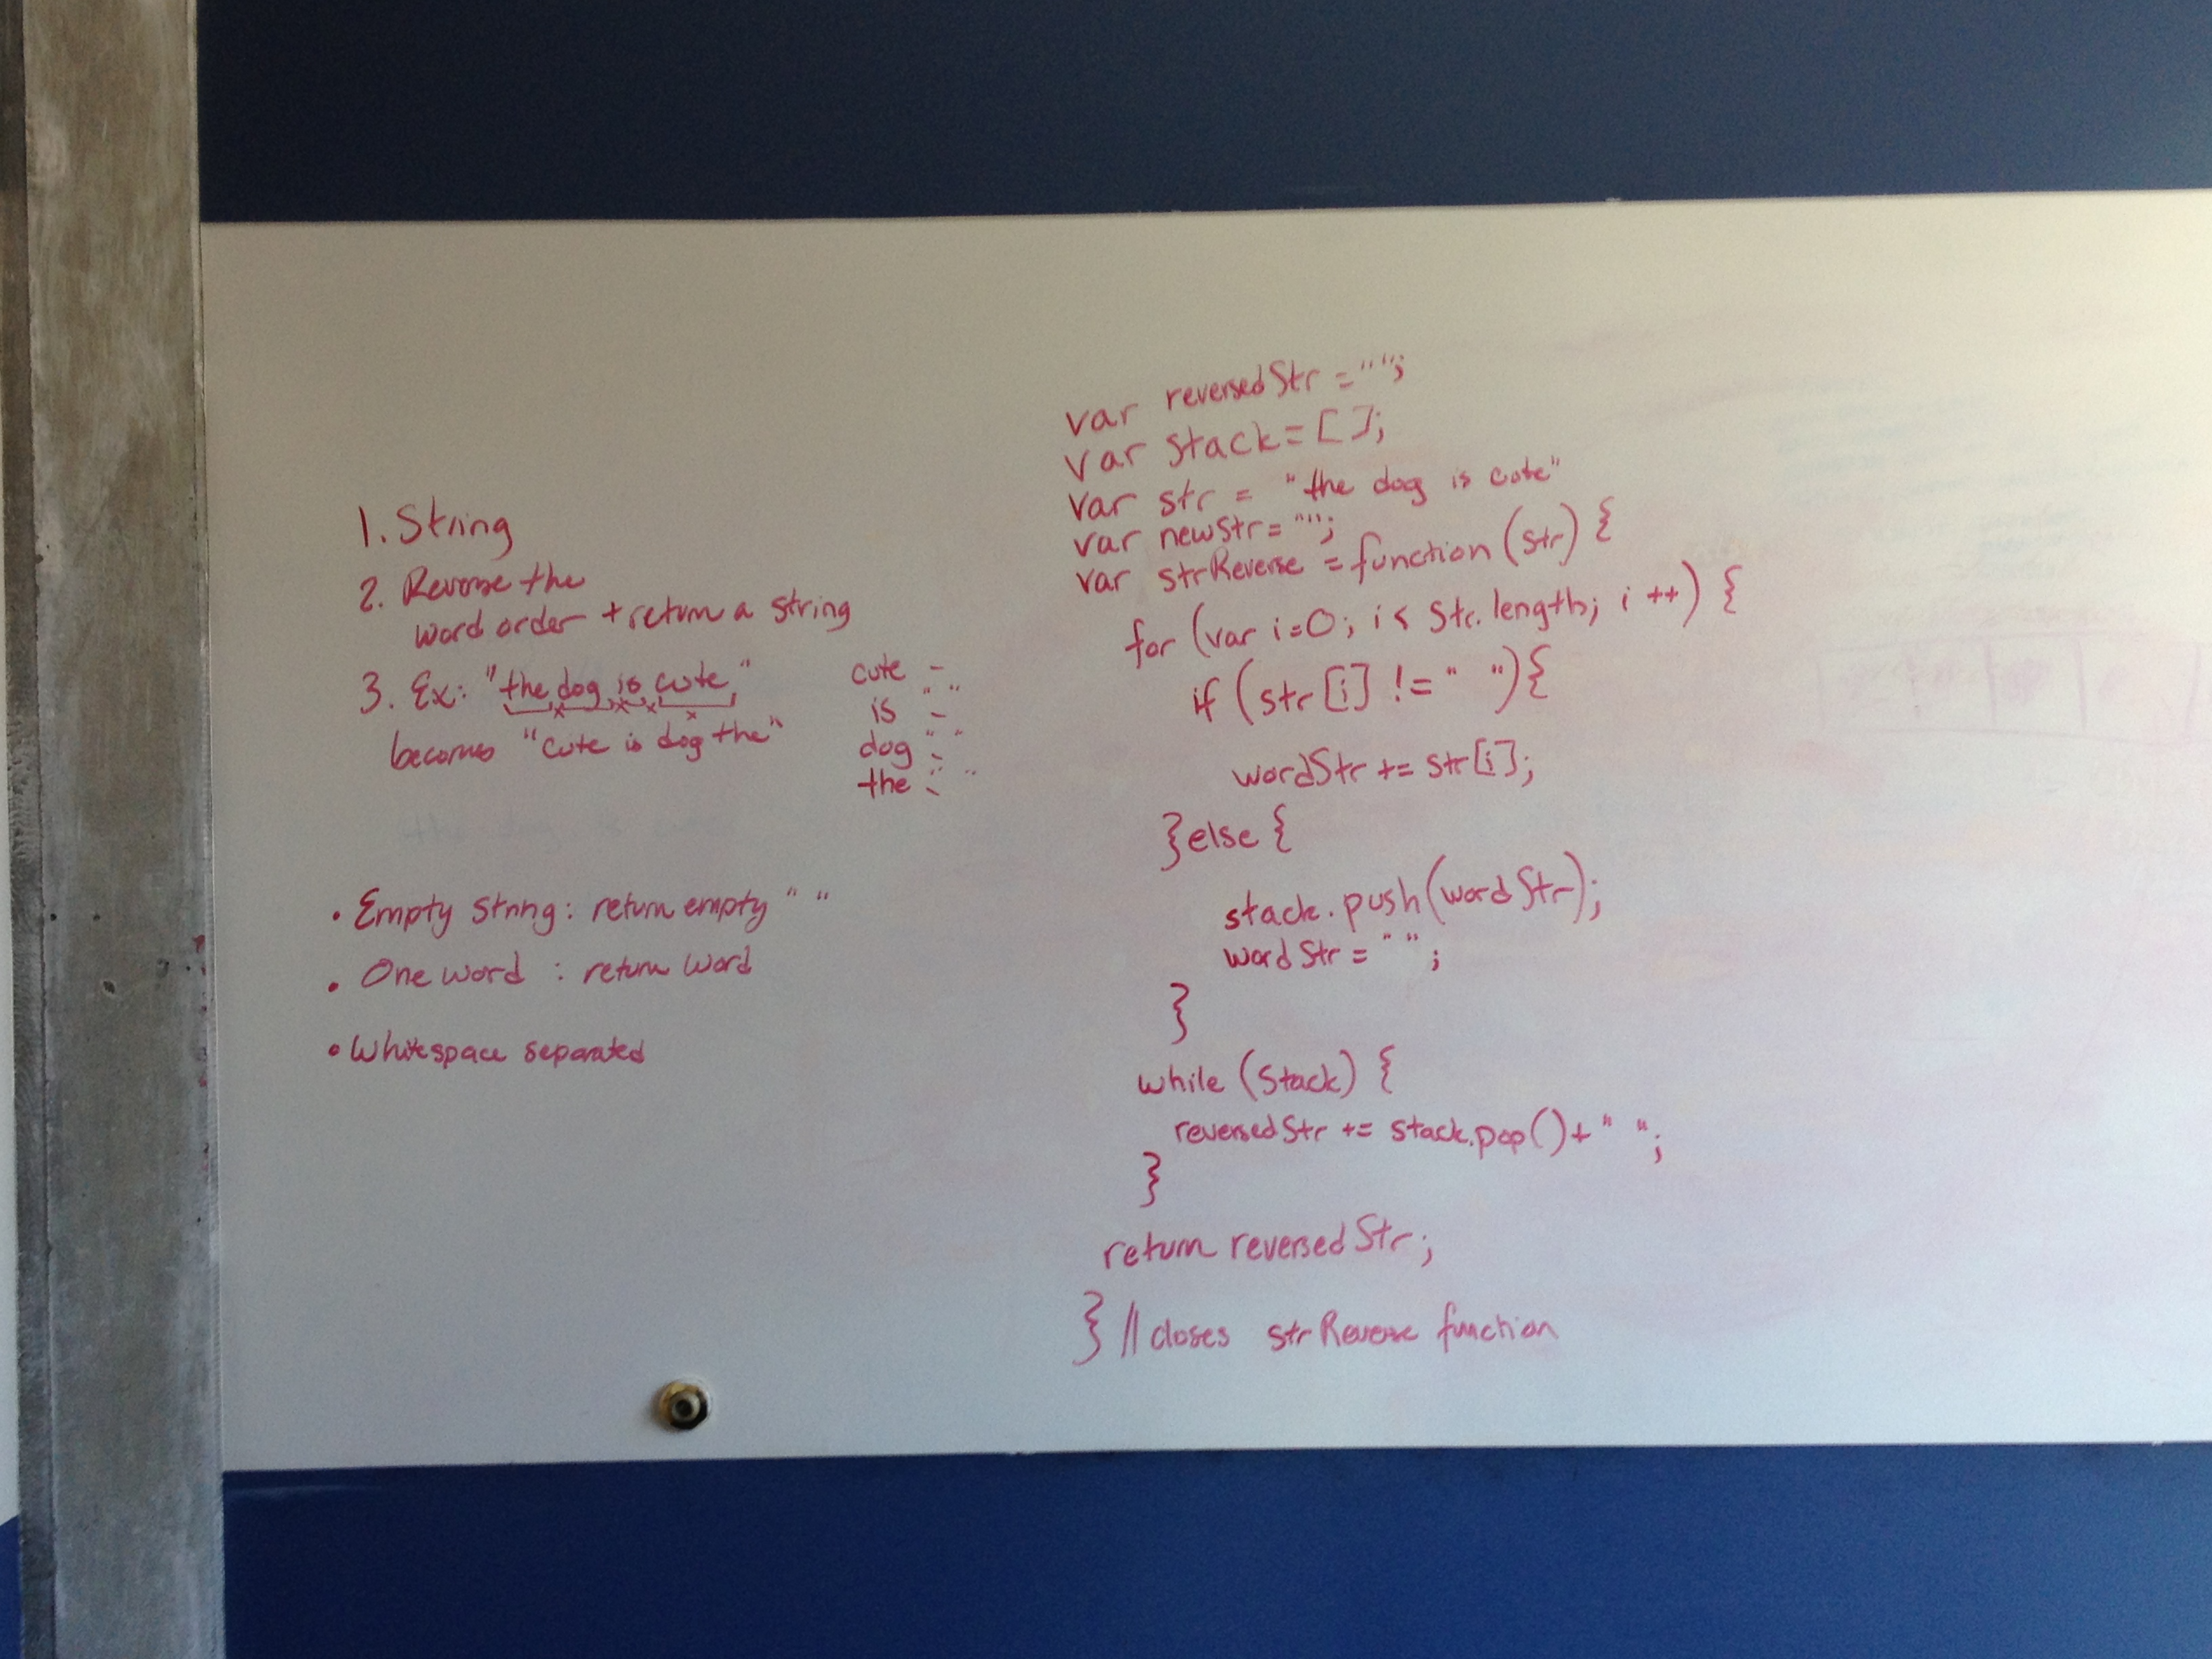 1. String
2. Reverse the
word order + return a string
3. Ex: "the dog is cute,"
becomes "cute is dog the"
cute -
is " "
-
dog " "
-
the " "
-
• Empty string: return empty " "
• One word : return word
• Whitespace separated
var reversedStr = "";
var stack = [];
var str = "the dog is cute"
var newStr = "";
var strReverse = function (str) {
for (var i=0; i < str.length; i ++) {
if (str[i] != " "){
wordStr += str[i];
}else {
stack.push(wordStr);
wordStr = " ";
}
while (stack) {
reversedStr += stack.pop() + " ";
}
return reversedStr;
} // closes strReverse function